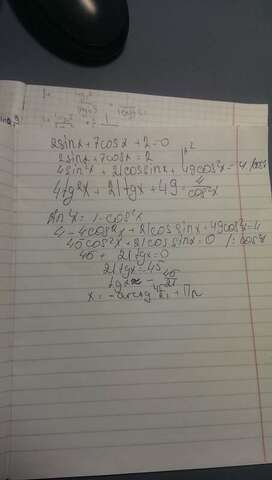 2sinx+7cosx+2=0
2sinx+7cosx=2 |^2
4sin²x+21cossinx+49cos²x=4
4tg²x+21tgx+49=4/cos²x
sin²x=1-cos²x
4-4cos²x+21cossinx+49cos²x=4
45cos²x+21cossinx=0 /:cos²x
45+21tgx=0
21tgx=45
tgx=-45/21
x=-arctg 45/21+Пn